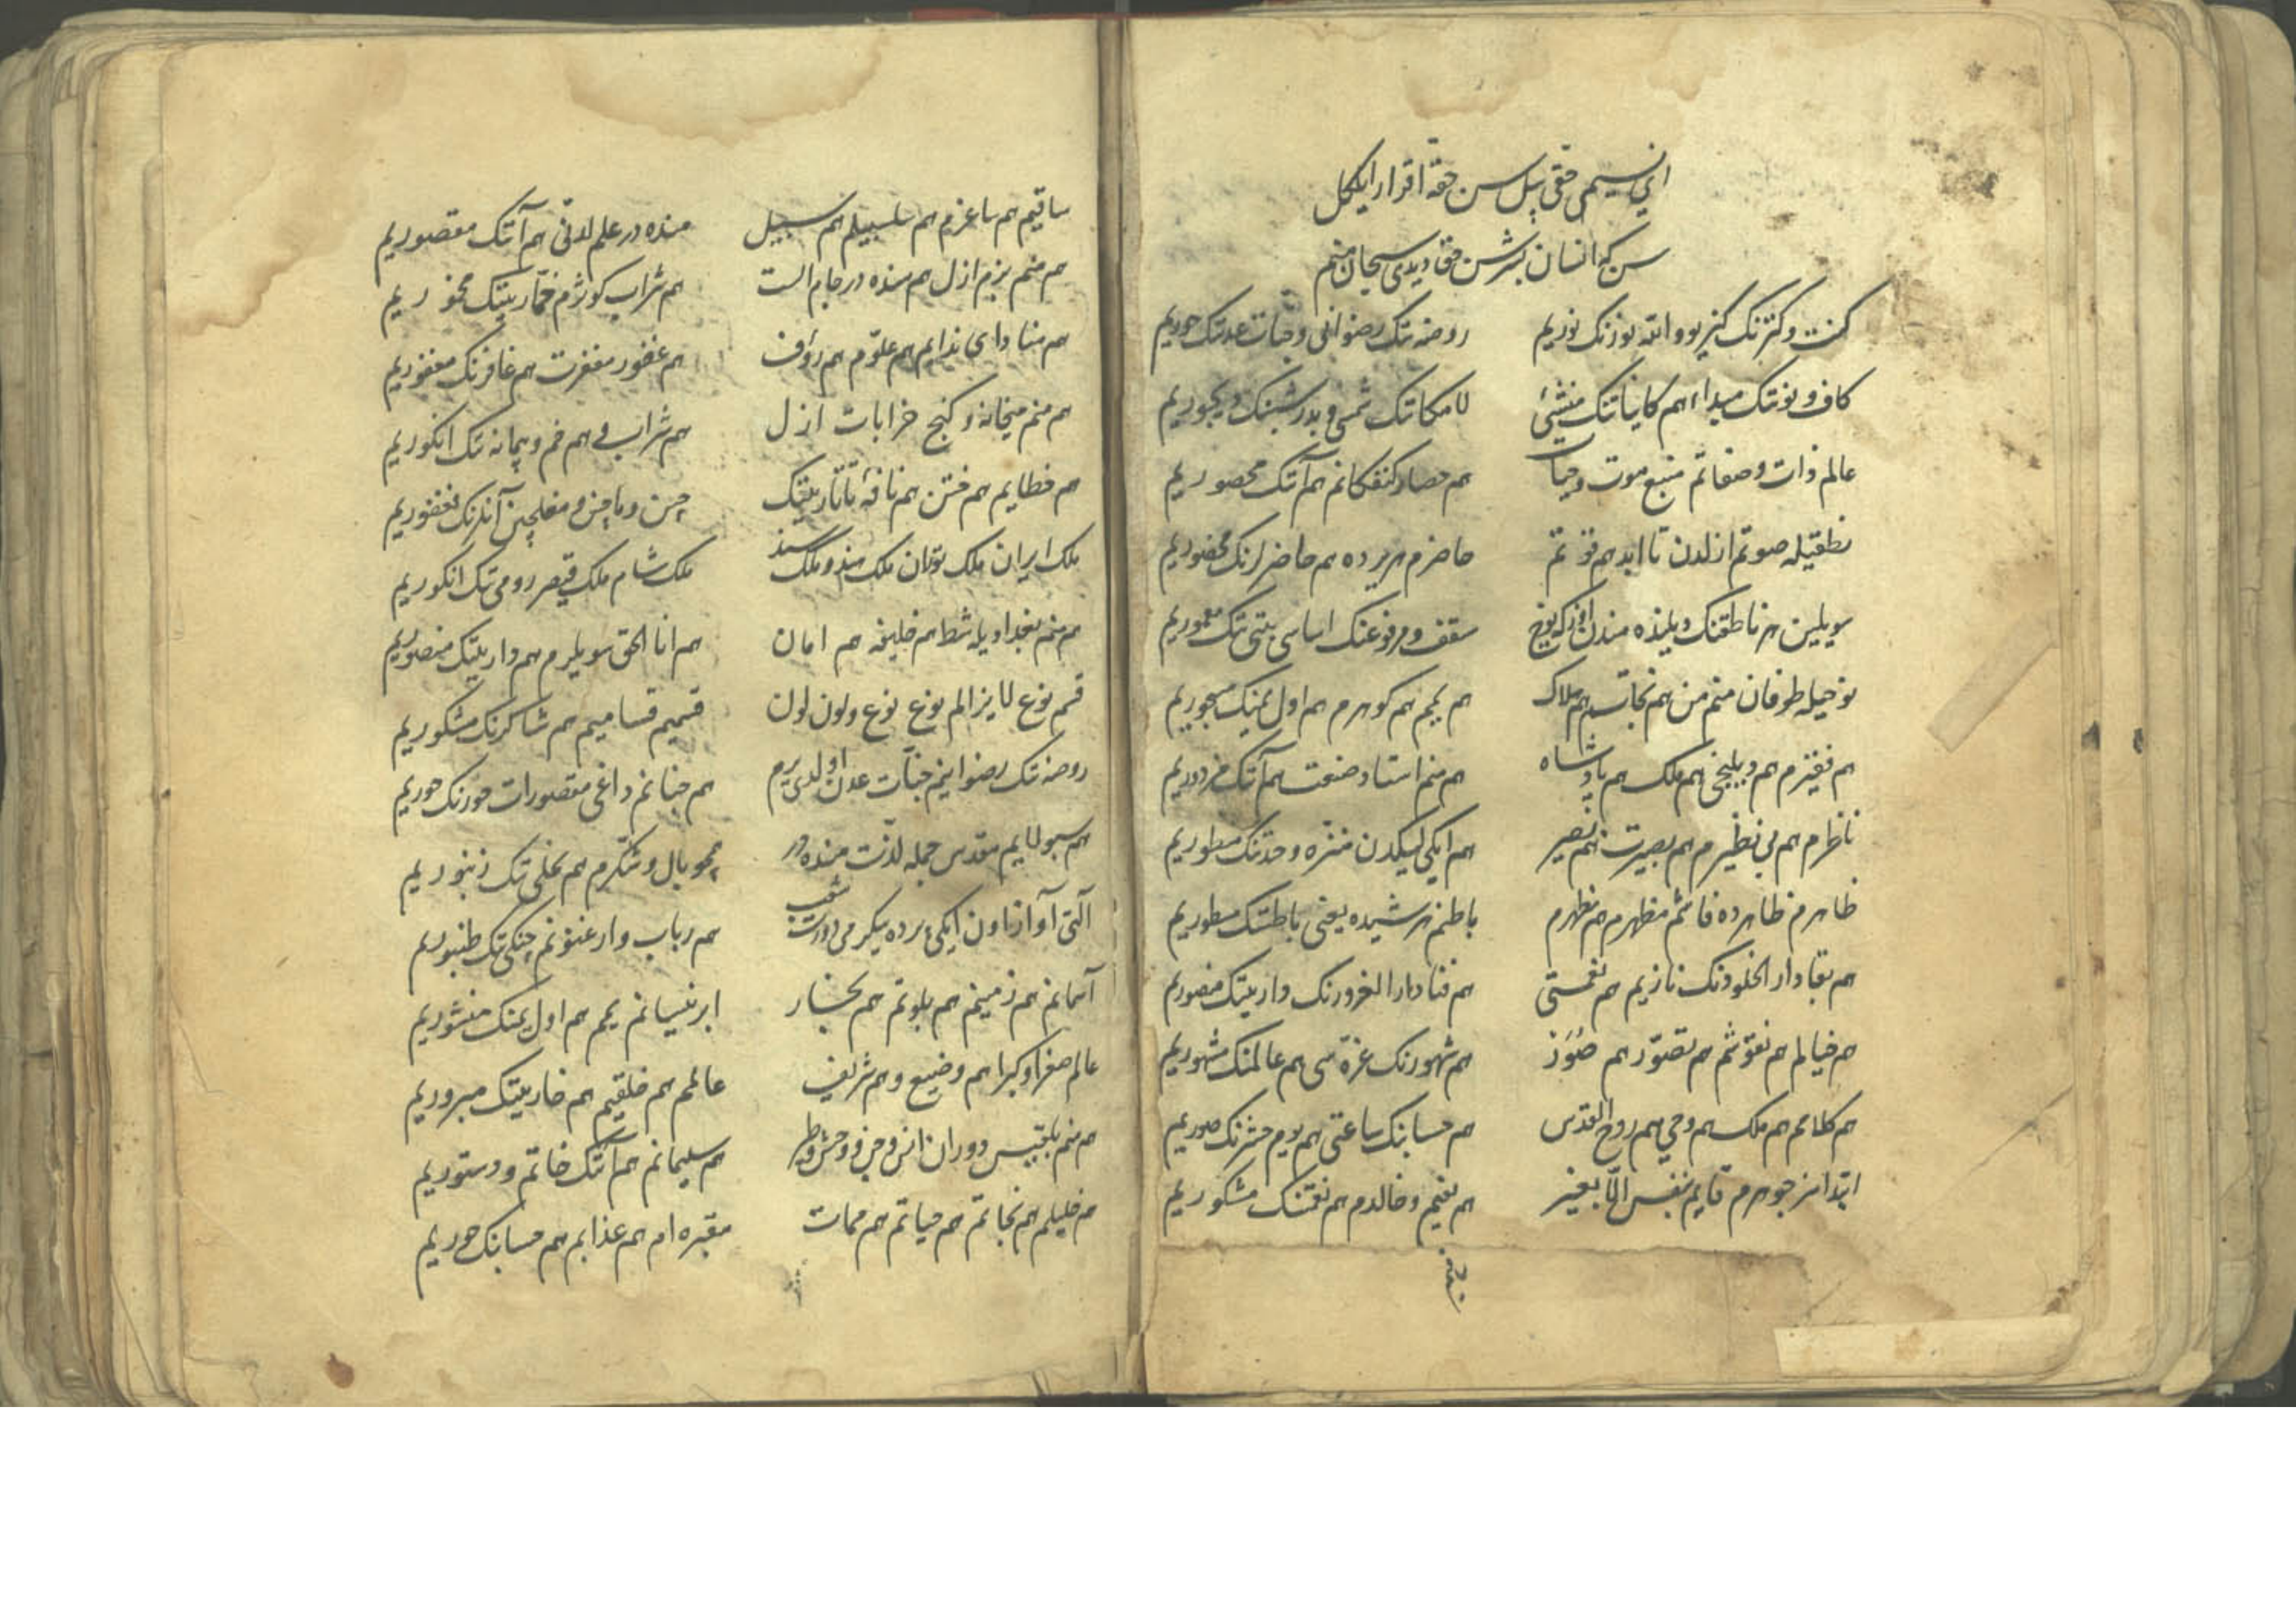 ای نسیمی حقی بیل سن حقه اقرار ایلکل
سن که انسان بشرسن حق دیدی سبحان منم
کنت و کنزنک کنزیوو الله نورنک نوریم
روضه نک رضوانی و جنات عدنک حوریم
کاف و نونک مبداء هم کایناتنک منشئی
لامکاننک شمس و بدر شبنک دیجوریم
عالم ذات و صفاتم منبع موت و حیات
هم حصار کنفکانم هم آننک محصوریم
نطقیله صوتم ازلدن تا ابد هم
حاضرم هر یرده هم حاضرلرنک محضوریم
سویلین هر ناطقنک دیلنده مندن
سقف و مرفوعنک اساسی بیتی نک معموریم
نوحیله طوفان منم من هم نجات هم هلاک
هم یمم هم کوهرم هم اول یمنک مسجوریم
هم فقیرم هم دیلنجی هم ملک هم پادشاه
هم منم استاد صنعت هم آننک مزدوریم
ناظرم هم بی نظیرم هم بصیرت هم بصیر
هم ایکی لیکدن منزه وحدتنک
ظاهرم ظاهرده فاشم مظهرم هم مظهرم
باطنم هر شیده یعنی باطننک مطوریم
هم بقا دار الخلودنک نازیم هم نعمتی
هم فنا دار الغرورنک داریننک
هم خیالم هم نقوشم هم تصور هم صور
هم شهورنک غره سی هم عالمنک مشهوریم
هم کلامم هم ملک هم وحی هم روح القدس
هم حسابنک ساعتی هم یوم حشرنک صوریم
ابتداسز جوهرم قایم بنفس لا بغیر
هم نعیم و خالدم هم نعمتنک مشکوریم
ساقیم هم ساغرم هم سلسبیلم هم سبیل
منده در علم لدنی هم آننک مقصوریم
هم منم بزم ازل هم منده در جام الست
هم شراب کوثرم خمارینک مخموریم
هم منادای ندایم هم علوم هم رؤف
هم غفور مغفرت هم غافرنک مغفوریم
هم منم میخانه و کنج خرابات ازل
هم شراب و هم خم و پیمانه نک انکوریم
هم خطایم هم ختن هم نافهٔ تاتارینک
چین و ماچین و آنلرنک فغفوریم
ملک ایران ملک توران ملک هند و ملک سند
ملک شام ملک قیصر رومی نک انکوریم
هم منم بغدادیله شط هم خلیفه هم امان
هم انا الحق سویلرم هم دارینک منصوریم
قسم نوع لایزالم نوع نوع و لون لون
قسمیم قسامیم هم شاکرنک مشکوریم
روضه نک رضوانیم جنات عدن اولدی یرم
هم جنانم داغی مقصورات حورنک حوریم
هم مقدس جمله لذت منده در
هم بال و شکرم هم نخلی نک زنبوریم
آلتی آواز اون ایکی پرده یکرمی درت شعب
هم رباب و ارغنونم چنکی نک طنبوریم
آسمانم هم زمینم هم بلوتم هم بخار
ابر نیسانم یمم هم اول یمنک منشوریم
عالم صغرا و کبرا هم وضیع و هم شریف
عالمم هم خلقیم هم
هم منم بلقیس دوران انس و جن و وحش و طیر
هم سلیمانم هم آننک خاتم و دستوریم
هم خلیلم هم نجاتم هم حیاتم هم ممات
مقبره ام هم عذابم هم حسابنک